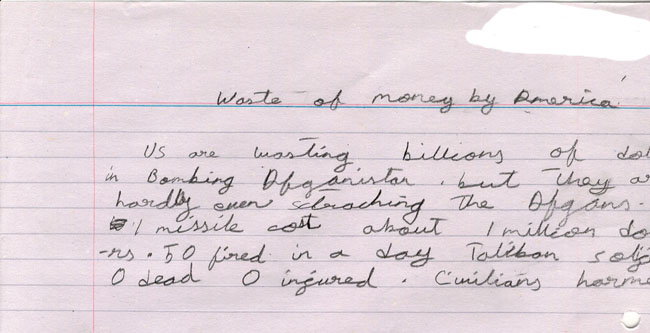 Waste of money by America
US are wasting billions of dol
in Bombing Afganistan. but they ar
hardly even scraching the Afgans.
1 missile cost about 1 million do
-rs. 50 fired in a day Taliban solj
0 dead 0 ingured. Civilians harme